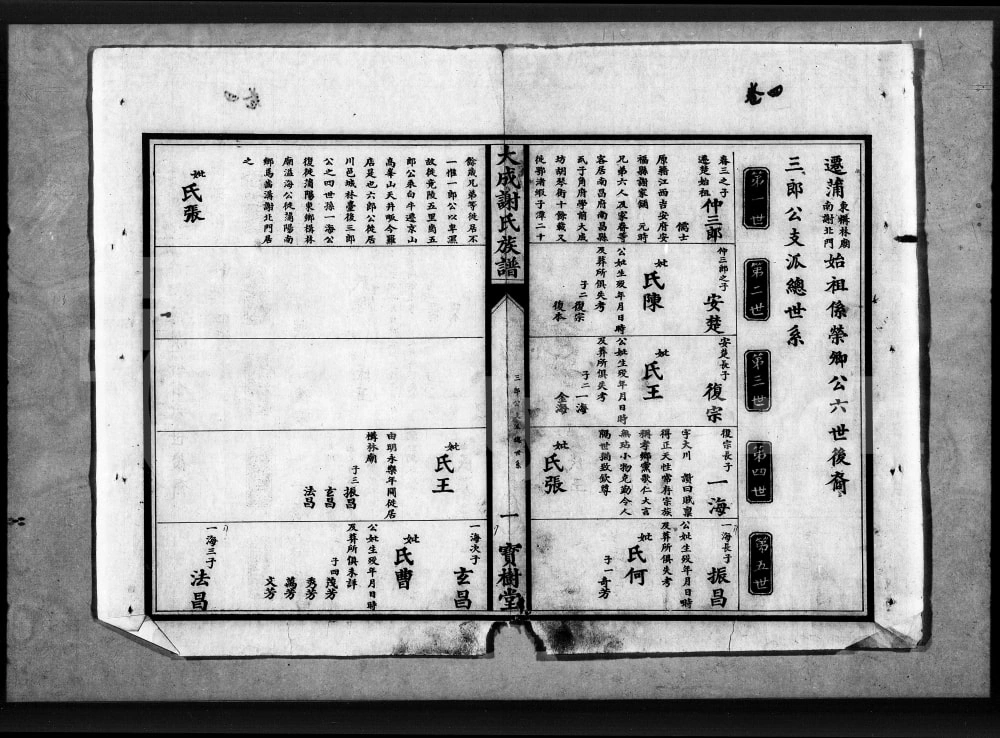 卷四
遷蒲東構林廟南謝北門始祖係榮卿公六世後裔
三郎公支派總世系
第一世
第二世
第三世
第四世
第五世
春三之子
遷楚始祖
仲三郎
儒士
原籍江西吉安府安
福縣謝家鋪 元時
兄弟六人及家眷等
客居南昌府南昌縣
瓦子角府學前大成
坊胡琴街十餘載又
徙鄂渚緞子潭二十
餘歲兄弟等徙居不
一惟一郎公以卑濕
故徙竟陵五里崗五
郎公乘白牛遷京山
高峯山天井畈今羅
店是也六郎公徙居
川邑城林臺後三郎
公之四世孫一海公
復徙蒲陽東鄉構林
廟溢海公徙蒲陽南
鄉馬蕩溝謝北門居
之
妣
張氏
仲三郎之子
安楚
妣
陳氏
公妣生歿年月日時
及葬所俱失考
子二復宗
復本
安楚長子
復宗
妣
王氏
公妣生歿年月日時
及葬所俱失考
子二一海
金海
復宗長子
一海
字大川 讚曰賦稟
得正天性常存宗族
稱孝鄉黨歌仁大言
無玷小物克勤今人
隔世猶致欽尊
妣
張氏
妣
王氏
由明永樂年間徙居
構林廟
子三振昌
玄昌
法昌
一海長子
振昌
公妣生歿年月日時
及葬所俱失考
妣
何氏
子一奇芳
一海次子
玄昌
妣
曹氏
公妣生歿年月日時
及葬所俱未詳
子四茂芳
秀芳
萬芳
文芳
一海三子
法昌
大成謝氏族譜
三郎公支派總世系
一
寶樹堂